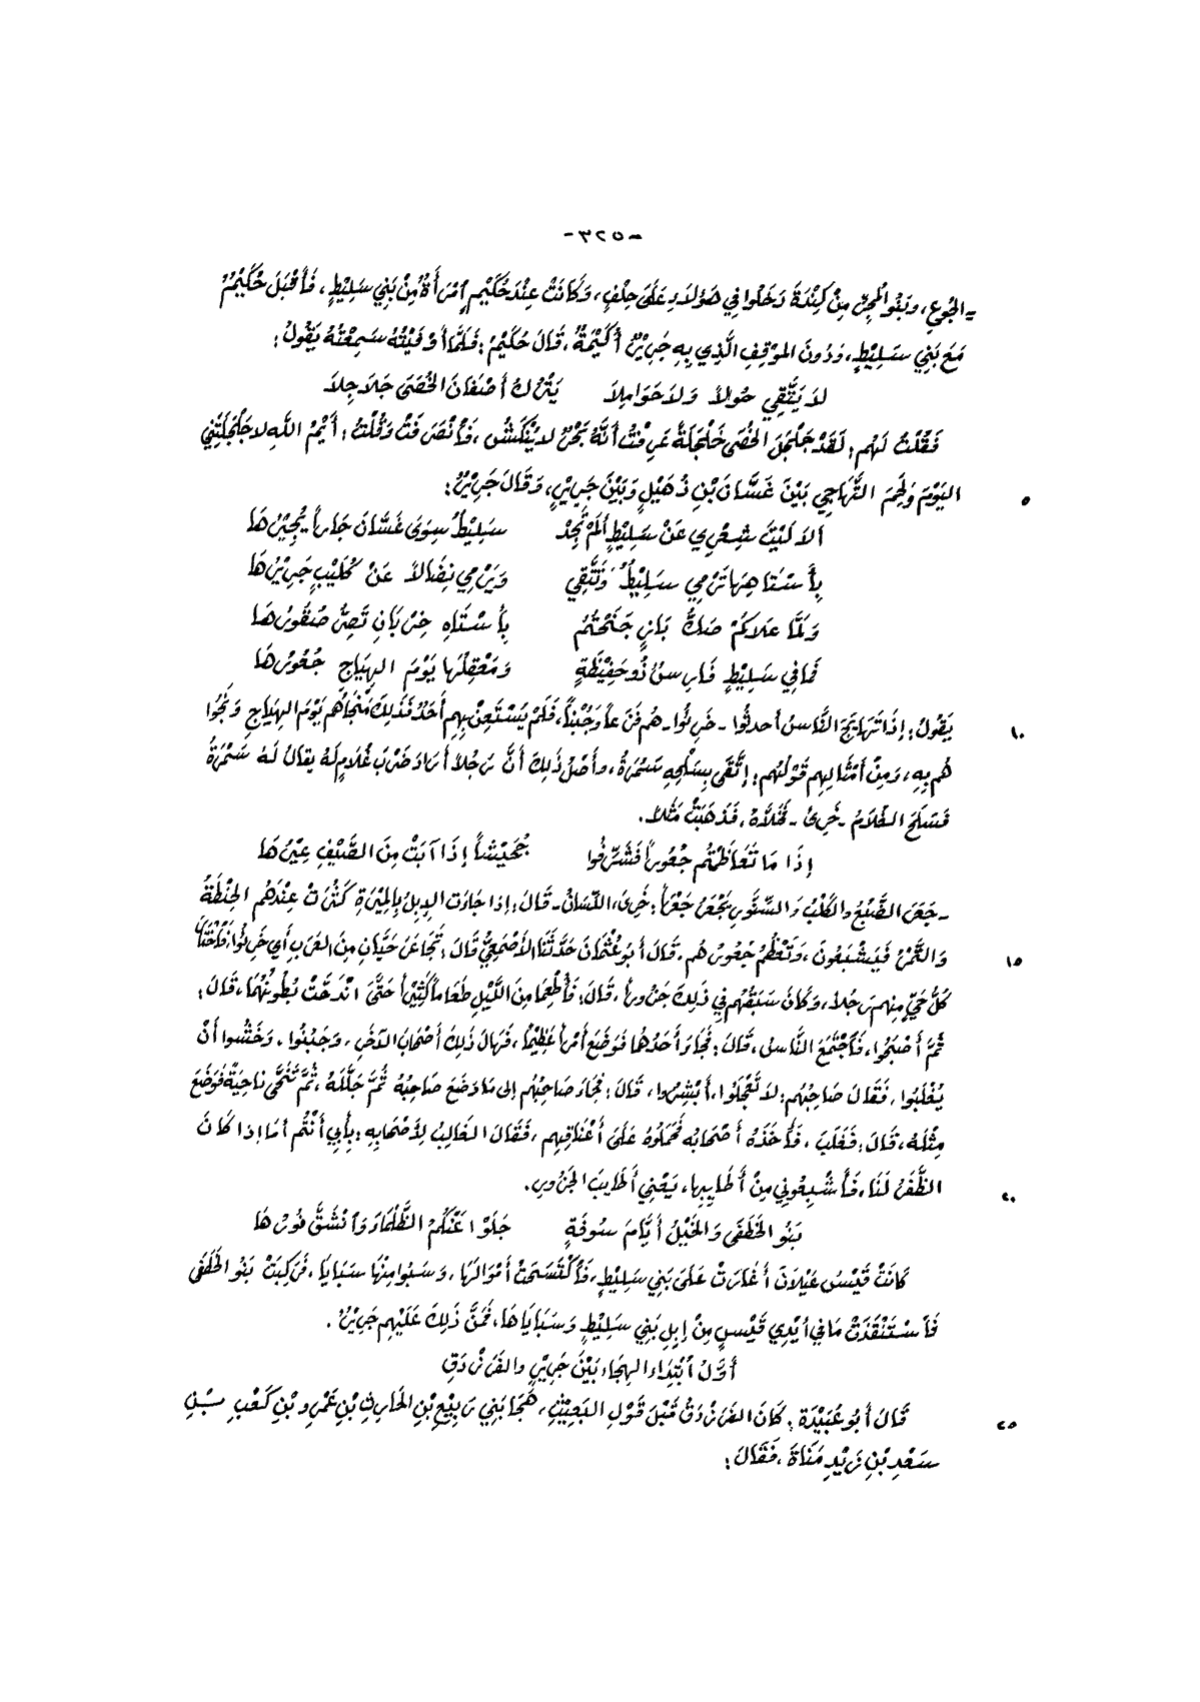 -٣٢٥-
= الجُوعِ، وبَنُو الْمِجَرِّ مِنْ كِنْدَةَ دَخَلُوا فِي هَؤُلَاءِ عَلَى حِلْفٍ، وَكَانَتْ عِنْدَ حُكَيْمٍ اَمْرَأَةٌ مِنْ بَنِي سَلِيْطٍ، فَأَقْبَلَ حُكَيْمٌ
مَعَ بَنِي سَلِيْطٍ، وَدُونَ المَوْقِفِ الَّذِي بِهِ جَرِيْرٌ أُكَيْمَةٌ، قَالَ حُكَيْمٌ: فَلَمَّا أَوْفَيْتُهُ سَمِعْتُهُ يَقُولُ:
لَا يَتَّقِي حُولاً وَلَا حَوَامِلَا يَتْرُكُ أَصْفَانَ الخُصَى جَلَاجِلَا
فَقُلْتُ لَهُم: لَقَدْ جَلْجَلَ الخُصَى جَلْجَلَةً عَرِفْتُ أَنَّهُ بَحْرٌ لا يُنْكَشُ، فَاَنْصَرَفْتُ وَقُلْتُ: أَيْمُ اللَّهِ لا جَلْجَلْتَنِي
اليَوْمَ وَلَحِمَ التَّهَاجِي بَيْنَ غَسَّانَ بْنِ ذُهَيْلٍ وَبَيْنَ جَرِيْرٍ، وَقَالَ جَرِيْرٌ: ٥
أَلَا لَيْتَ شِعْرِي عَنْ سَلِيْطٍ أَلَمْ تَجِدْ سَلِيْطُ سِوَى غَسَّانَ جَاراً يُجِيْرُهَا
بِأَسْتَاهِهَا تَرْمِي سَلِيْطٌ وَتَتَّقِي وَيَرْمِي نِضَالاً عَنْ كُلَيْبٍ جَرِيْرُهَا
وَلَمَّا عَلَاكُمْ صَكُّ بَازٍ جَنَحْتُمُ بِأَسْتَاهِ خِرْبَانٍ تَصِرُّ صُقُورُهَا
فَمَا فِي سَلِيْطٍ فَارِسٌ ذُو حَفِيْظَةٍ وَمَعْقِلُهَا يَوْمَ الهِيَاجِ جُعُورُهَا
يَقُولُ: إِذَا تَهَايَجَ النَّاسُ أَحدثُوا - خَرِئُوا - هُم فَزَعاً وَجُبْناً، فَلَمْ يَسْتَعِنْ بِهِم أَحَدٌ فَذَلِكَ مَنْجَاهُم يَوْمَ الهِيَاجِ وَنَجَوْا ١٠
هُم بِهِ، وَمِنْ أَمْثَالِهِم قَوْلُهُم: اِتَّقَى بِسَلْحِهِ سَمُرَةُ، وأَصْلُ ذَلِكَ أَنَّ رَجُلاً أَرَادَ ضَرْبَ غُلَامٍ لَهُ يقَالُ لَهُ سَمُرَةُ
فَسَلَحَ الغُلَامُ - خَرِئَ - فَخَلَّاهُ، فَذَهَبَتْ مَثَلاً.
إِذَا مَا تَعَاظَمْتُم جُعُوراً فَشَرِّفُوا جُحَيْشاً إِذَا آبَتْ مِنَ الصَّيْفِ عِيْرُهَا
- جَعَرَ الضَّبُعُ والكَلْبُ وَالسِّنَّورُ يَجْعَرُ جَعْراً: خَرِئَ، اللّسَانُ - قَالَ: إِذا جَاءَتِ الإِبِلُ بِالمِيْرَةِ كَثُرَتْ عِنْدَهُم الحِنْطَةُ
وَالتَّمْرُ فَيَشْبَعُونَ، وَتَعْظُمُ جُعُورُهُم. قَالَ أَبُو عُثْمَانَ حَدَّثَنَا الأَصْمَعِيُّ قَالَ: تَجَاعَرَ حَيَّانِ مِنَ العَرَبِ أَي خَرِئُوا، ١٥
كُلُّ حَيٍّ مِنهِم رَجُلاً، وَكَانَ سَبَقُهُم فِي ذَلِكَ جَزُوراً، قَالَ: فَأُطْعِمَا مِنَ اللَّيْلِ طَعَاماً كَثِيْراً حَتَّى انْدَحَّتْ بُطُونُهُمَا، قَالَ:
ثُمَّ أَصْبَحُوا، فَاَجْتَمَعَ النَّاسُ، قَالَ: فَجَاءَ أَحَدُهُمَا فَوَضَعَ أَمْراً عَظِيْماً، فَهَالَ ذَلِكَ أَصْحَابَ الآخَرِ، وَجَبُنُوا. وَخَشُوا أَنْ
يُغْلَبُوا، فَقَالَ صَاحِبُهُم: لَا تَعْجَلُوا، أَبْشِرُوا، قَالَ: فَجَاءَ صَاحِبُهُم إِلى مَا وَضَعَ صَاحِبُهُ ثُمَّ جَلَّلَهُ، ثُمَّ تَنَحَّى نَاحِيَةً فَوَضَعَ
مِثْلَهُ، قَالَ: فَغَلَبَ، فَأَخَذَهُ أَصْحَابُهُ فَحَمَلُوهُ عَلَى أَعْنَاقِهِم، فَقَالَ الغَالِبُ لِأَصْحَابِهِ: بِأَبِي أَنْتُم أَمَا إِذا كَانَ
الظَّفَرُ لَنَا، فَأَشْبِعُونِي مِنْ أَطَايِبِهَا، يَعْنِي أَطَايِبَ الجَزُورِ. ٢٠
بَنُو الخَطَفَى وَالخَيْلُ أَيَّامَ سُوفَةٍ جَلَوْا عَنْكُمُ الظَّلْمَاءَ وَاَنْشَقَّ نُورُهَا
كَانَتْ قَيْسُ عَيْلَانَ أَغَارَتْ عَلَى بَنِي سَلِيْطٍ، فَاَكْتَسَحَتْ أَمْوَالَهَا، وَسَبَوا مِنْهَا سَبَايَا، فَرَكِبَتْ بَنُو الخَطَفَى
فَاَسْتَنْقَذَتْ مَا فِي أَيْدِي قَيْسٍ مِنْ إِبِلِ بَنِي سَلِيْطٍ وَسَبَايَاهَا، فَمَنَّ ذَلِكَ عَلَيْهِم جَرِيْرٌ.
أَوَّلُ اَبْتِدَاءِ الهِجَاءِ بَيْنَ جَرِيْرٍ والفَرَزْدَقِ
قَالَ أَبُو عُبَيْدَةَ: كَانَ الفَرَزْدَقُ قَبْلَ قَوْلِ البَعِيْثِ، هَجَا بَنِي رَبِيْعِ بْنِ الحَارِثِ بْنِ عَمْرِو بْنِ كَعْبِ بْنِ ٢٥
سَعْدِ بْنِ زَيْدِ مَنَاةَ، فَقَالَ: